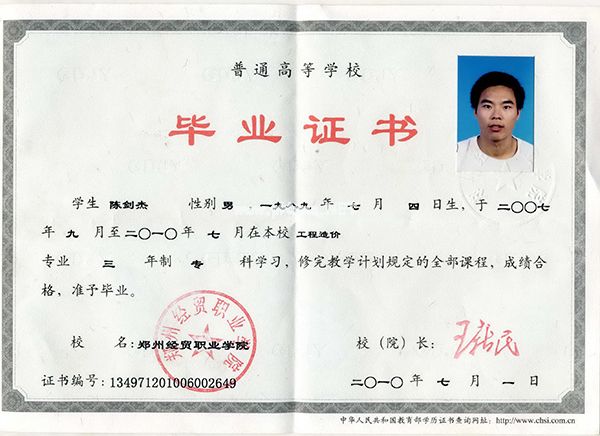 普通高等学校
毕业证书
学生 陈剑杰 性别 男 , 一九八九 年 七 月 四 日生, 于 二〇〇七
年 九 月至 二〇一〇 年 七 月在本校 工程造价
专业 三 年制 专 科学习, 修完教学计划规定的全部课程, 成绩合
格, 准予毕业。
郑州经贸职业学院
校 名: 郑州经贸职业学院 校(院)长:
证书编号: 134971201006002649 二〇一〇 年 七 月 一 日
中华人民共和国教育部学历证书查询网址: http://www.chsi.com.cn